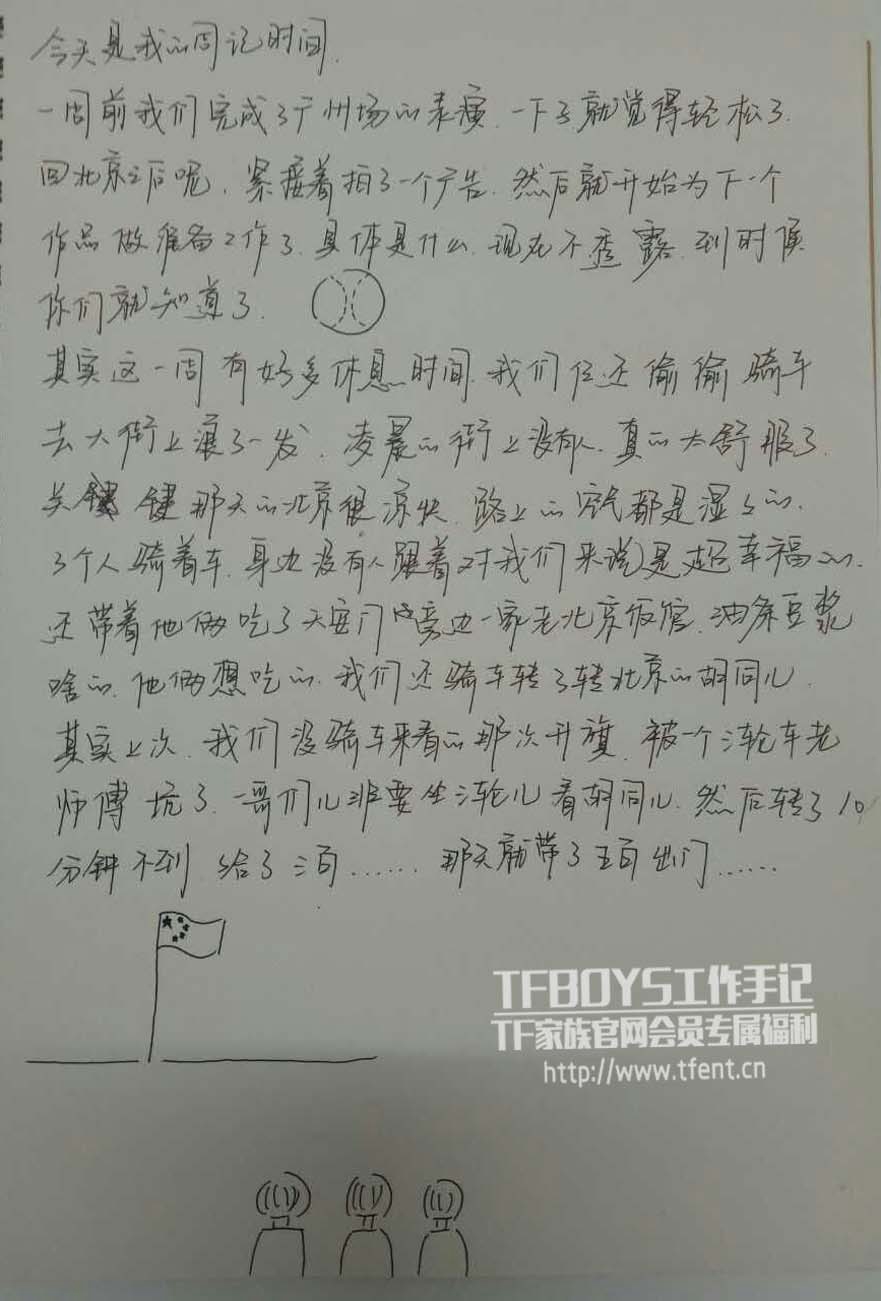 今天是我的周记时间.
一周前我们完成了广州场的表演.一下子就觉得轻松了.
回北京之后呢,紧接着拍了一个广告.然后就开始为下一个
作品做准备工作了.具体是什么.现在不透露.到时候
你们就知道了.
其实这一周有好多休息时间.我们仨还偷偷骑车
去大街上浪了一发.凌晨的街上没有人.真的太舒服了.
关键 那天的北京很凉快.路上的空气都是湿湿的.
3个人骑着车.身边没有人跟着对我们来说是超幸福的.
还带着他俩吃了天安门旁边一家老北京饭馆.油条豆浆
啥的.他俩想吃的.我们还骑车转了转北京的胡同儿.
其实上次.我们没骑车来看的那次升旗.被一个三轮车老
师傅坑了.哥们儿非要坐三轮儿看胡同儿.然后转了10
分钟不到.给了三百......那天就带了五百出门......
TFBOYS工作手记
TF家族官网会员专属福利
http://www.tfent.cn